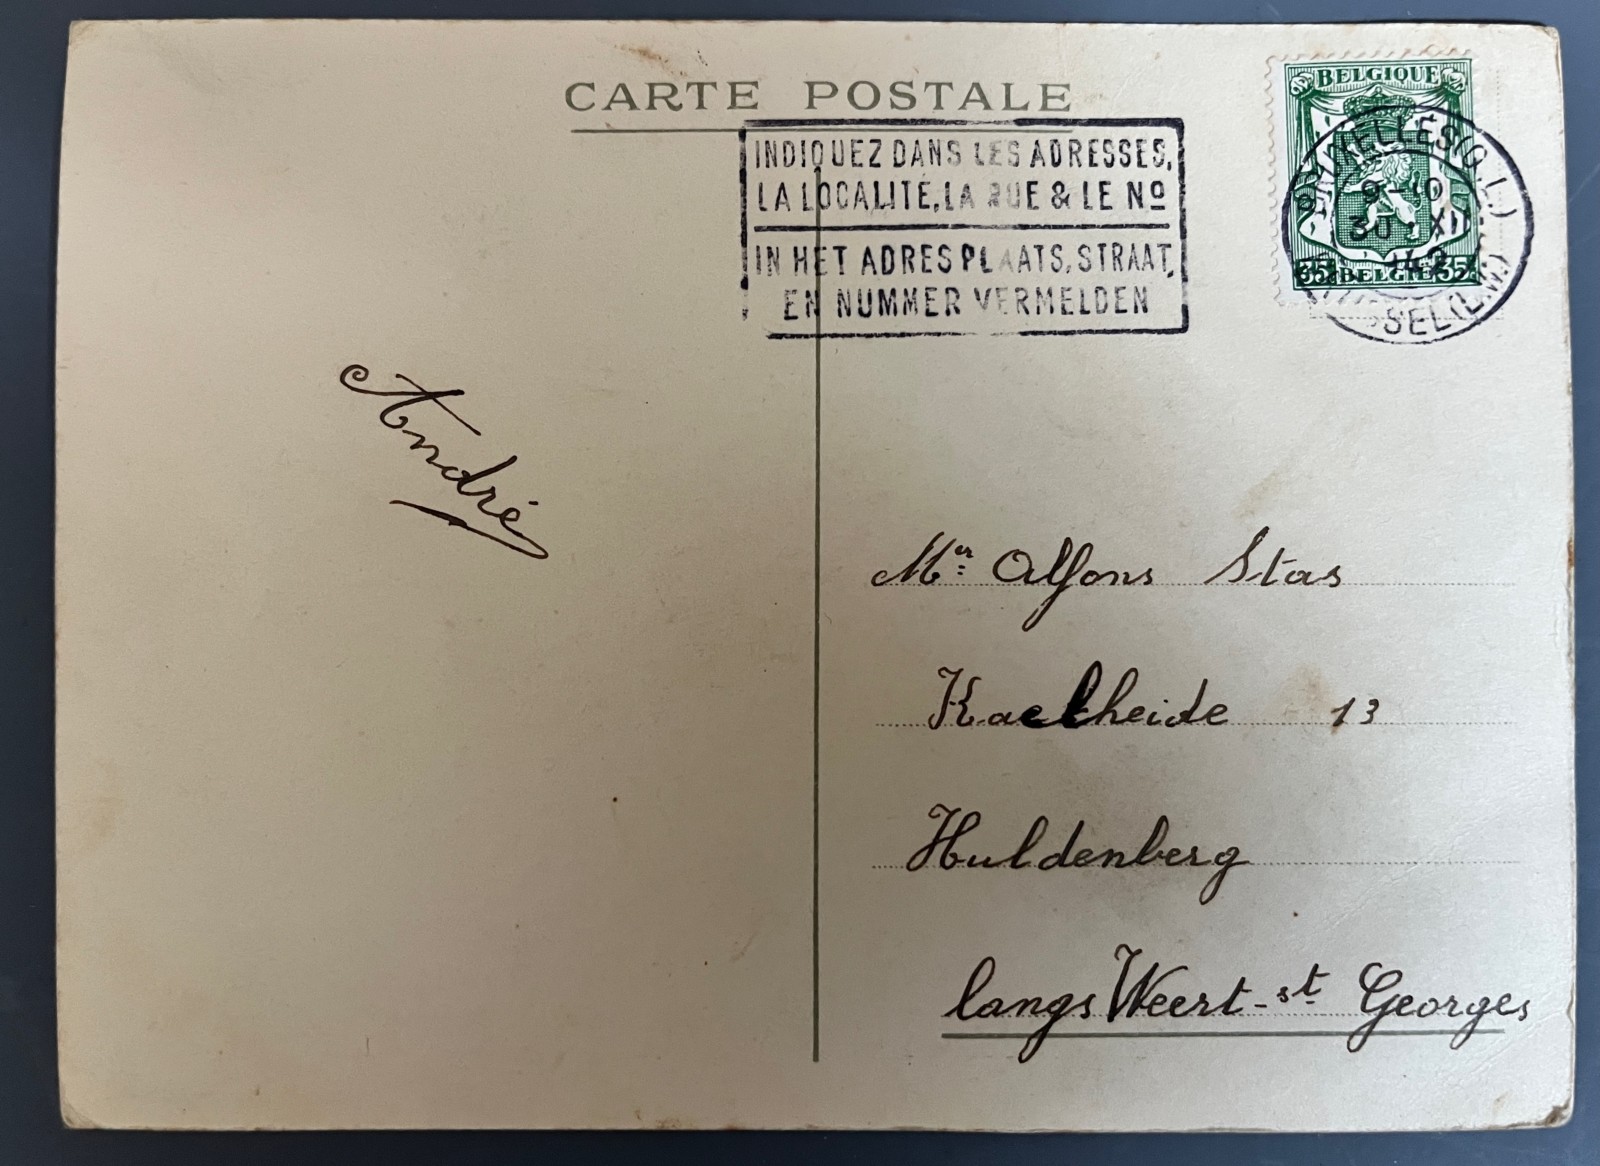 CARTE POSTALE
INDIQUEZ DANS LES ADRESSES,
LA LOCALITÉ, LA RUE & LE Nº
IN HET ADRES PLAATS, STRAAT,
EN NUMMER VERMELDEN
BELGIQUE
35c BELGIE 35c
BRUXELLES (Q.L.)
9-10
30 XI
BRUSSEL (L.W.)
André
Mer Alfons Stas
Kaelheide 13
Huldenberg
langs Weert-st Georges